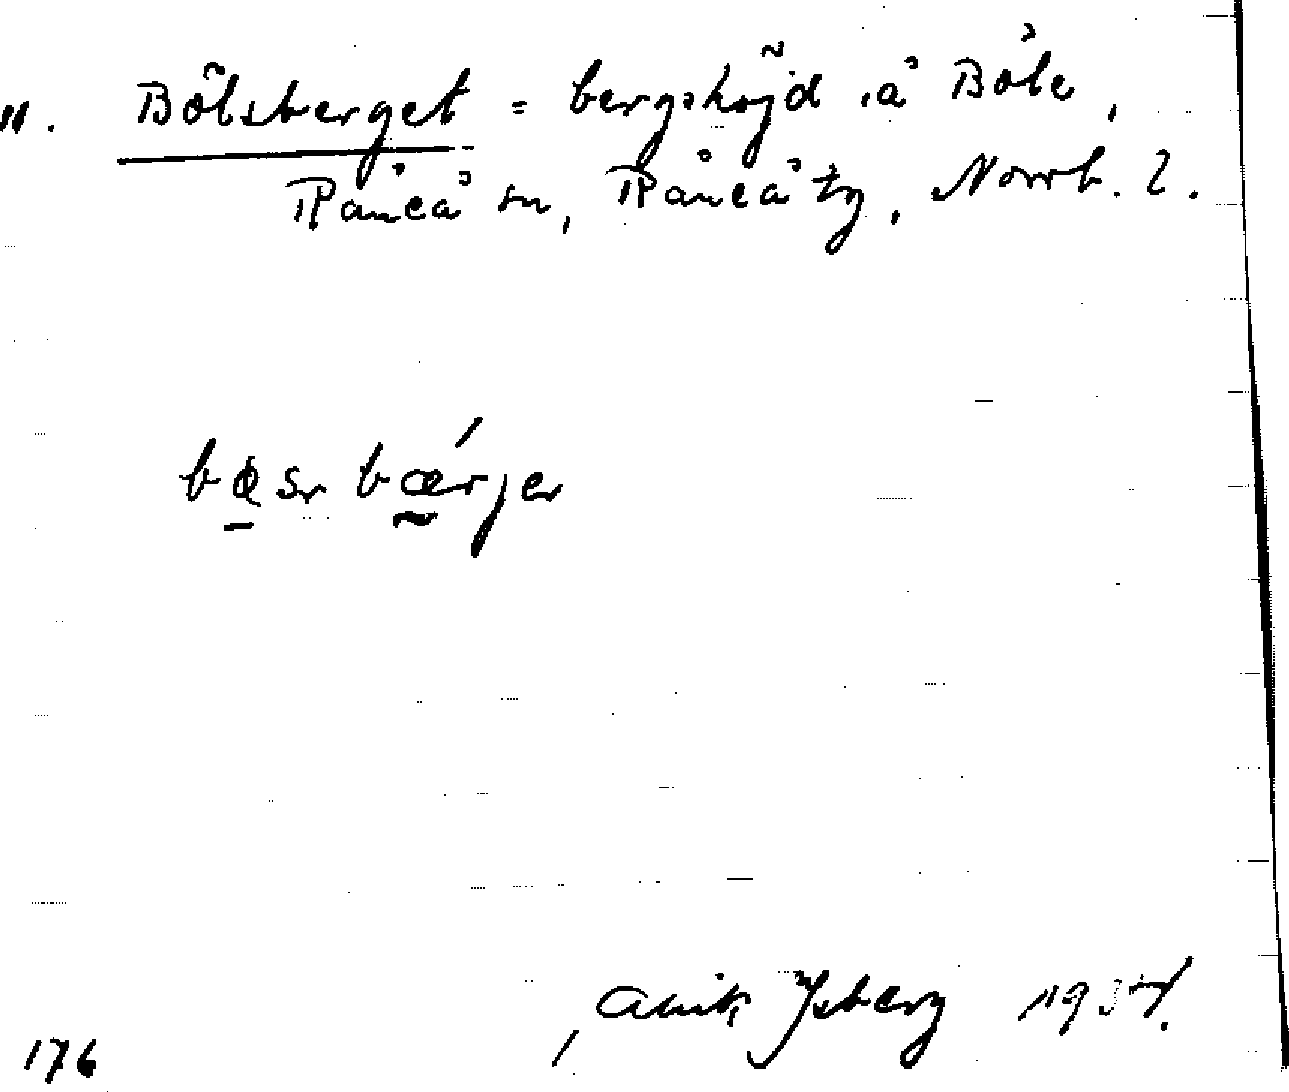 11. Bölsberget = bergshöjd å Böle,
Råneå sn, Råneå tg, Norrb. l.
bœsr bœ́rjer
Anita Ysberg 1937.
176